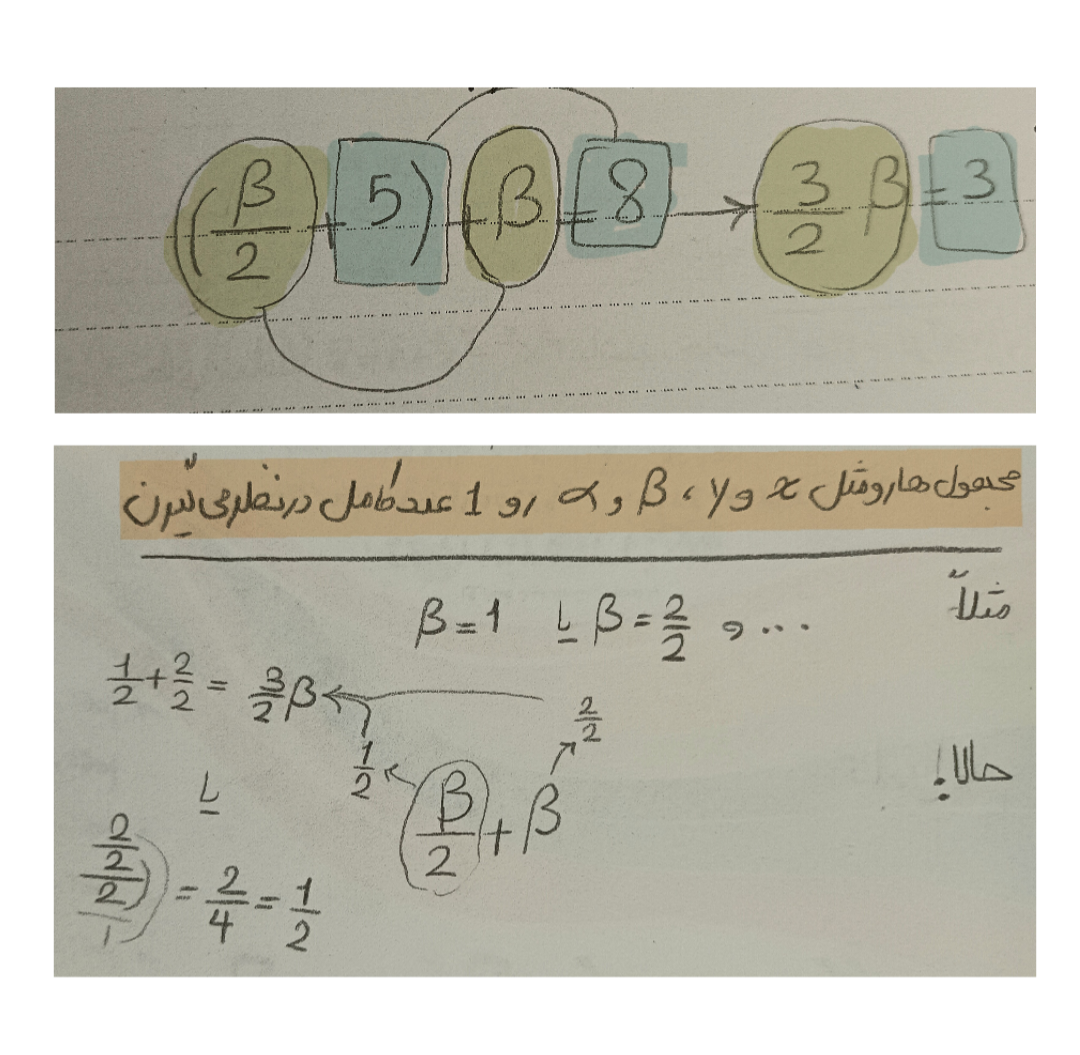 (β/2 + 5) + β = 8 → 3/2 β = 3
مجهول هارو مثل x و y ، β و α رو 1 عدد کامل در نظر می گیرن
مثلاً
β = 1 یا β = 2/2 و ...
1/2 + 2/2 = 3/2 β
2/2
حالا!
1/2
β/2 + β
یا
2/2/2/1 = 2/4 = 1/2